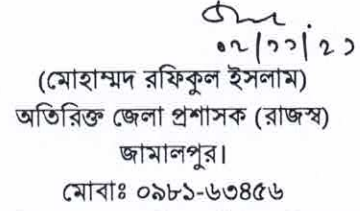 ০২/১১/২১
(মোহাম্মদ রফিকুল ইসলাম)
অতিরিক্ত জেলা প্রশাসক (রাজস্ব)
জামালপুর।
মোবাঃ ০৯৮১-৬৩৪৫৬